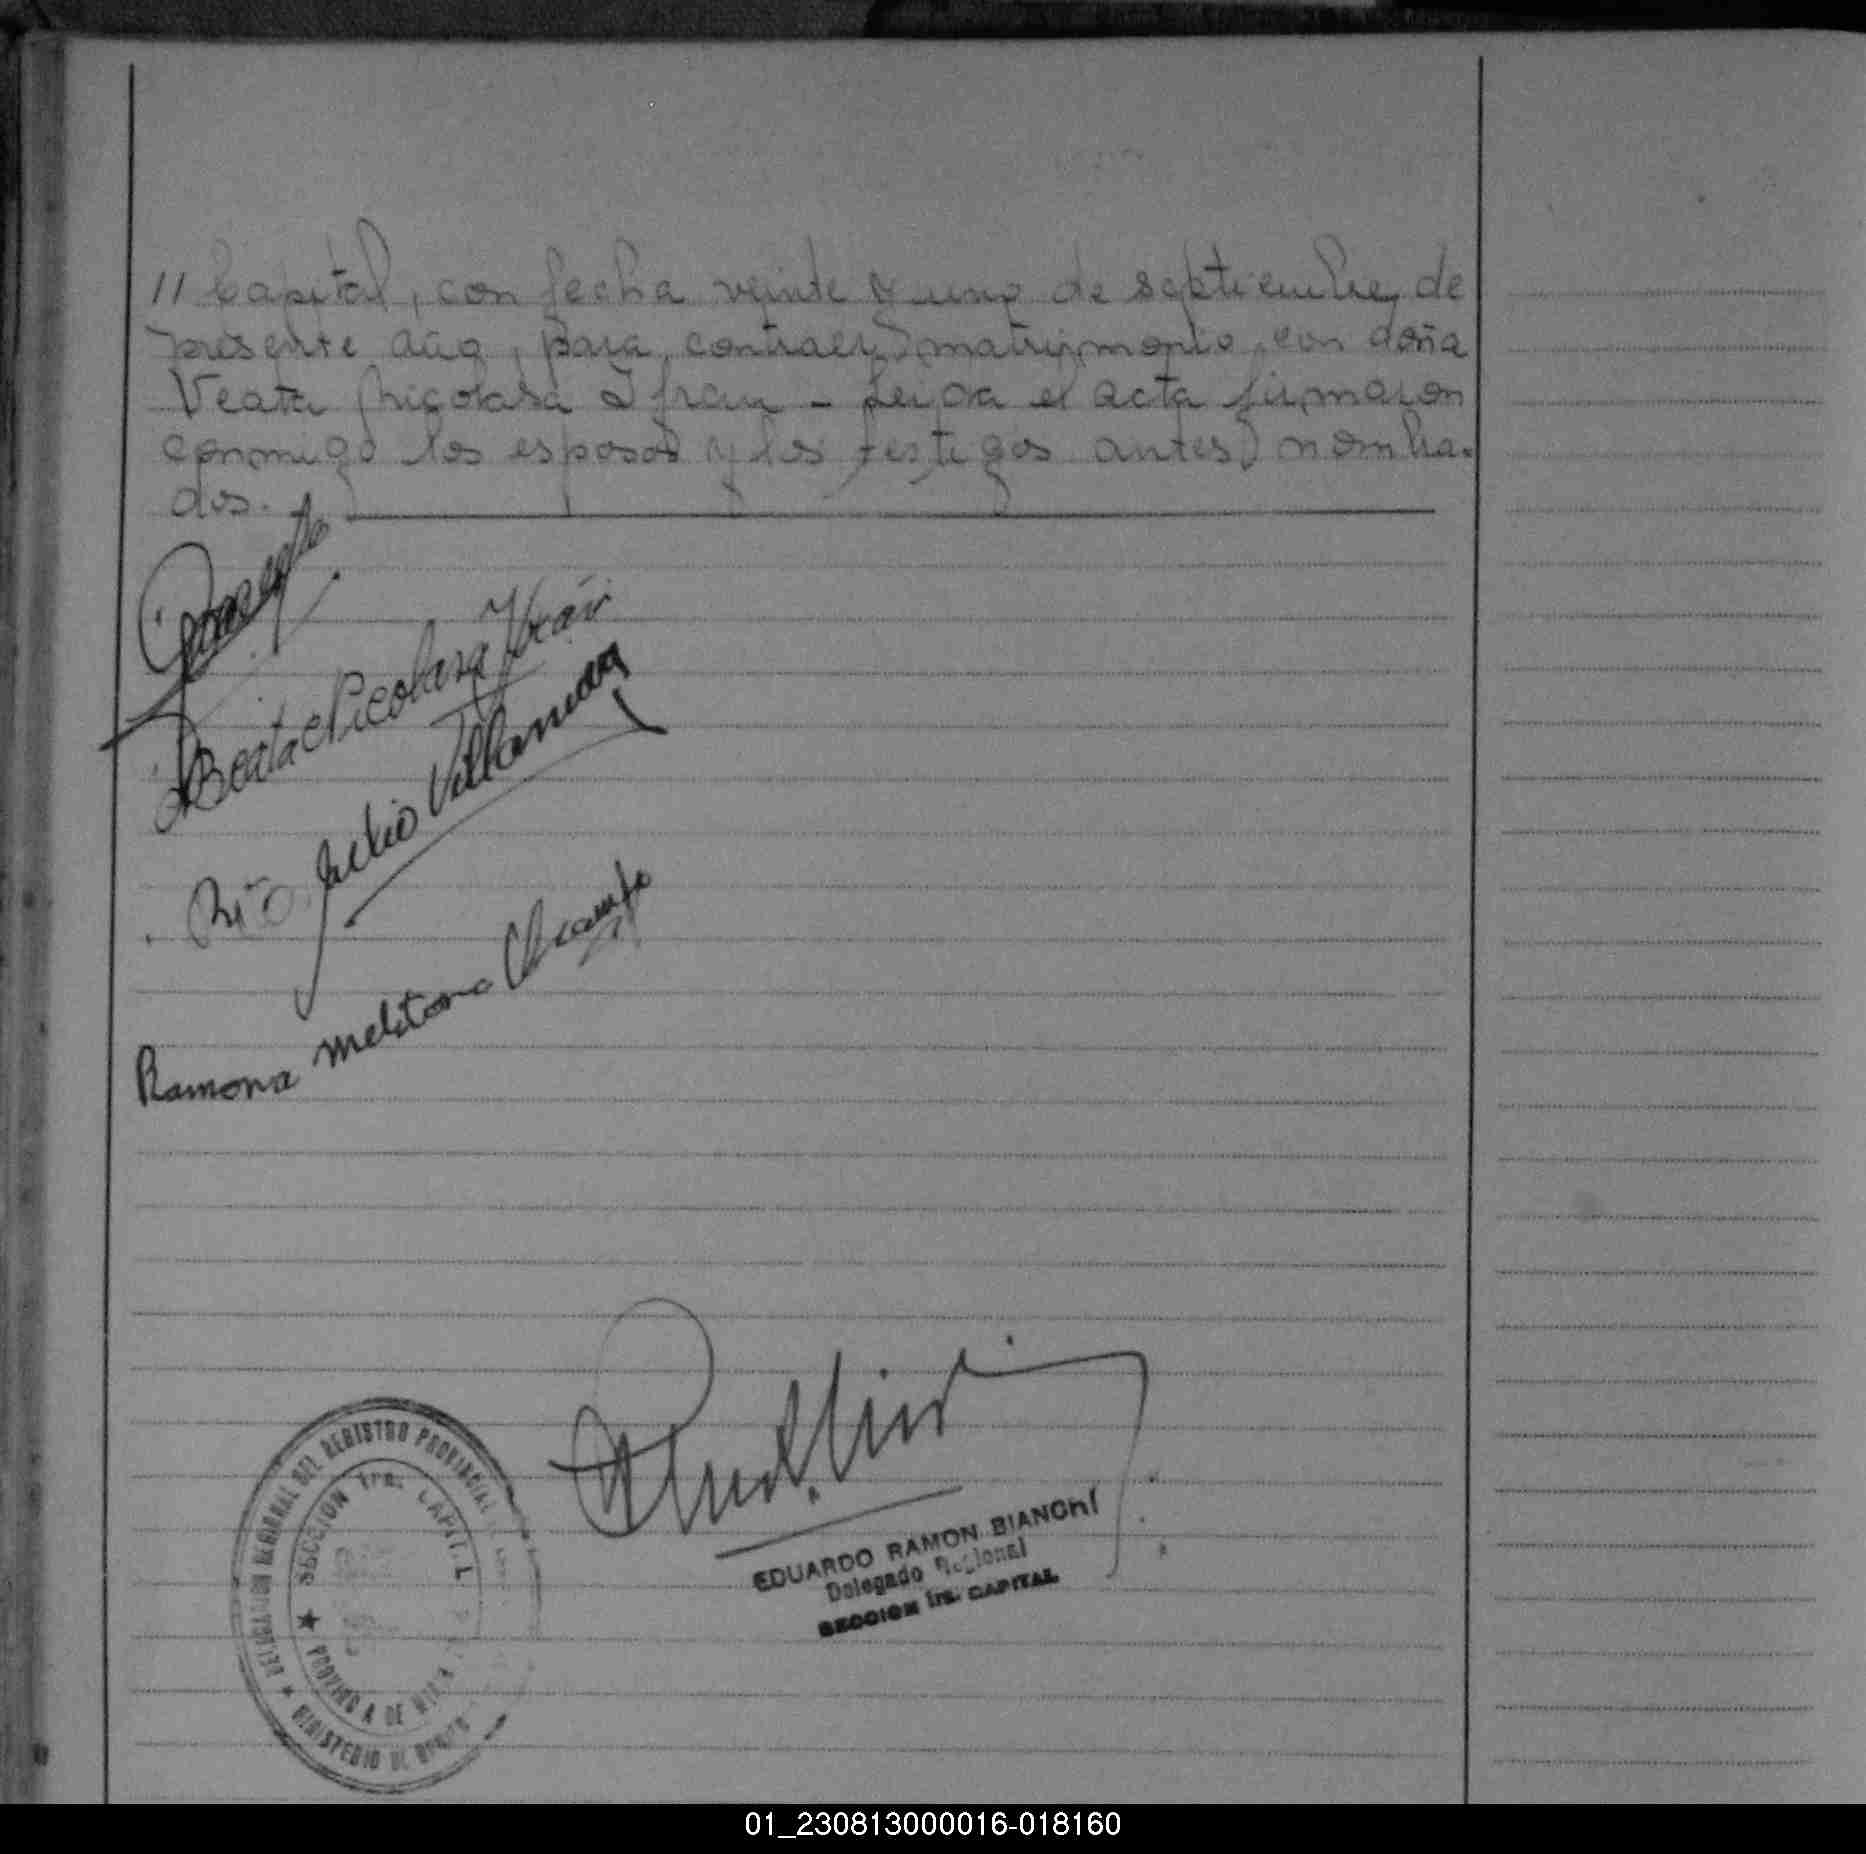 // Capital, con fecha veinte y uno de septiembre, de
presente año, para contraer matrimonio con doña
Veata Nicolasa Ifran - Leida el acta firmaron
conmigo los esposos y los testigos antes nombra-
dos.
Beata Nicolasa Ifrán
Julio Villanueva
Ramona Melitona Ocampo
DELEGACION REGIONAL DEL REGISTRO PROVINCIAL
SECCION 1ra. CAPITAL
PROVINCIA DE
MINISTERIO DE
EDUARDO RAMON BIANCHI
Delegado Regional
SECCION 1ra. CAPITAL
01_230813000016-018160